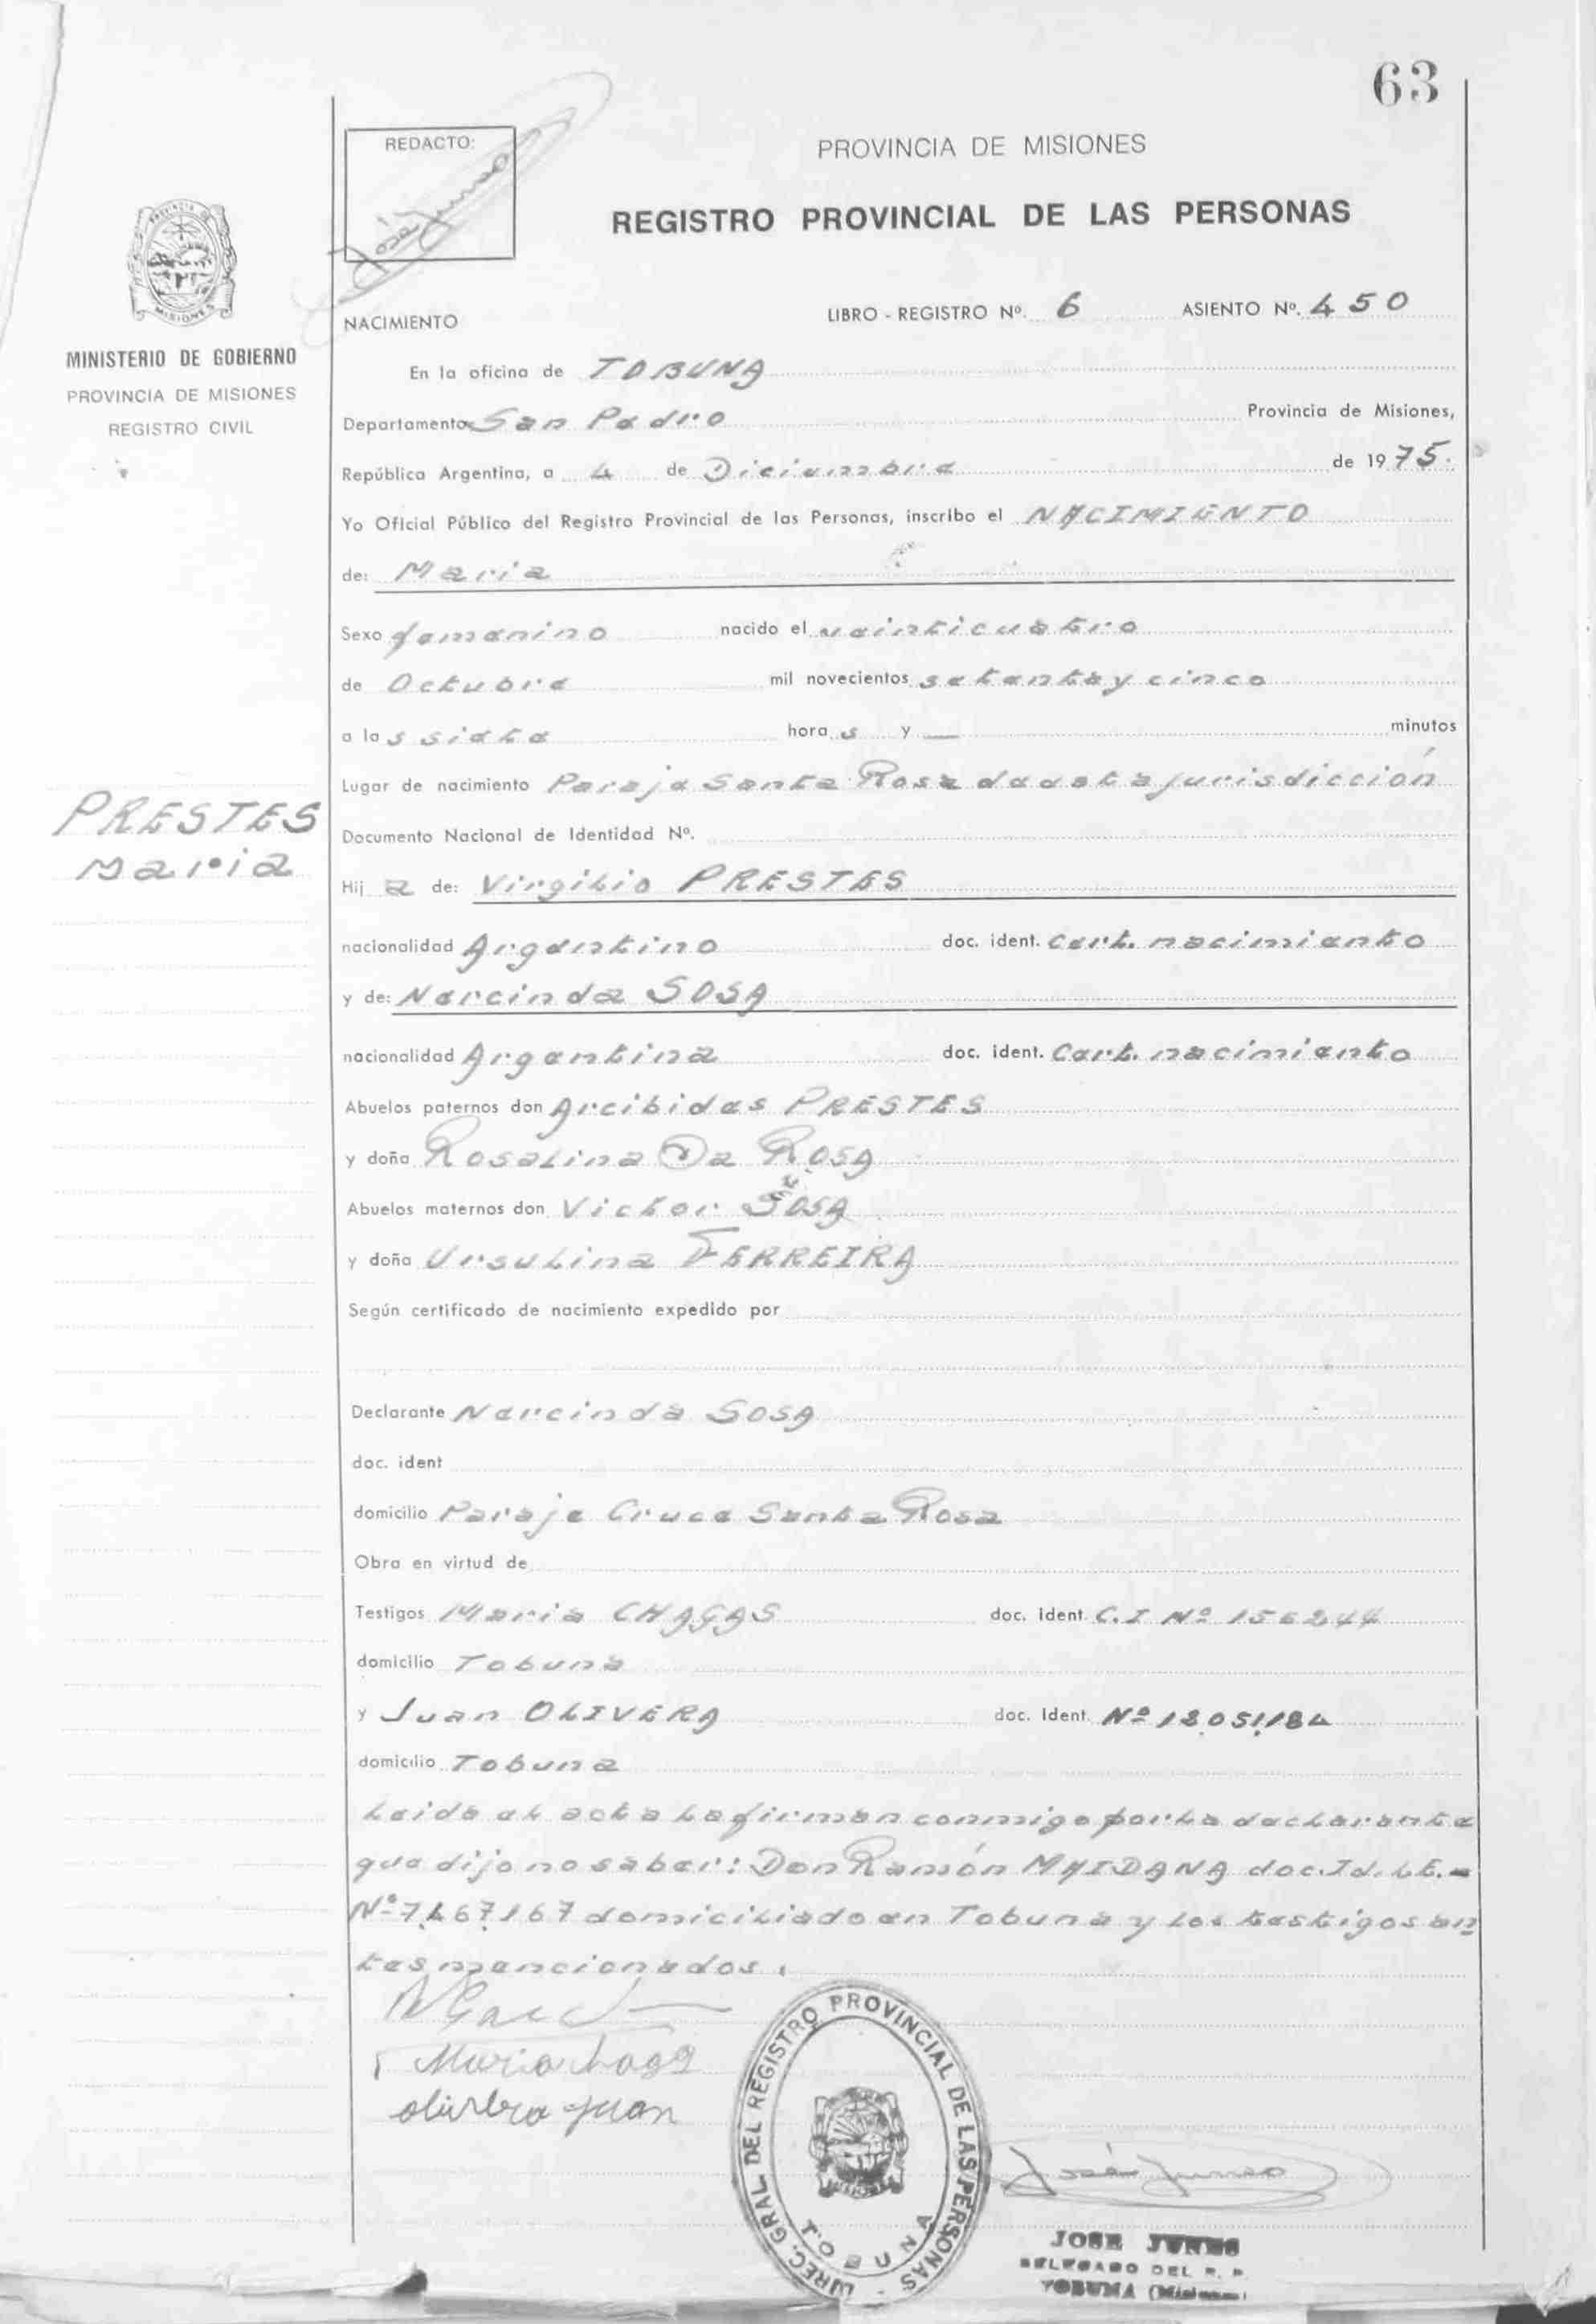 63
REDACTO:
José Junes
PROVINCIA DE MISIONES
REGISTRO PROVINCIAL DE LAS PERSONAS
PROVINCIA DE
MISIONES
MINISTERIO DE GOBIERNO
PROVINCIA DE MISIONES
REGISTRO CIVIL
NACIMIENTO LIBRO - REGISTRO Nº. 6 ASIENTO Nº. 450
En la oficina de TOBUNA
Departamento San Pedro Provincia de Misiones,
República Argentina, a 4 de Diciembre de 1975.
Yo Oficial Público del Registro Provincial de las Personas, inscribo el NACIMIENTO
de: Maria
Sexo femenino nacido el veinticuatro
de Octubre mil novecientos setenta y cinco
a las siete horas y — minutos
Lugar de nacimiento Paraje Santa Rosa de esta jurisdicción
PRESTES
Maria
Documento Nacional de Identidad Nº.
Hija de: Virgilio PRESTES
nacionalidad Argentino doc. ident. Cert. nacimiento
y de: Nercinda SOSA
nacionalidad Argentina doc. ident. Cert. nacimiento
Abuelos paternos don Arcibides PRESTES
y doña Rosalina Da ROSA
Abuelos maternos don Victor SOSA
y doña Ursulina FERREIRA
Según certificado de nacimiento expedido por
Declarante Nercinda SOSA
doc. ident
domicilio Paraje Cruce Santa Rosa
Obra en virtud de
Testigos Maria CHAGAS doc. ident. C.I Nº
domicilio Tobuna
y Juan OLIVERA doc. Ident. Nº
domicilio Tobuna
Leida el acta la firman conmigo por la declarante
que dijo no saber: Don Ramón MAIDANA doc. Id. L.E.-
Nº 7.467.167 domiciliado en Tobuna y los testigos an
tes mencionados.
Maria
olivera juan
DIREC. GRAL. DEL REGISTRO PROVINCIAL DE LAS PERSONAS -
TOBUNA
José Junes
JOSE JUNES
DELEGADO DEL R. P.
TOBUNA (Misiones)